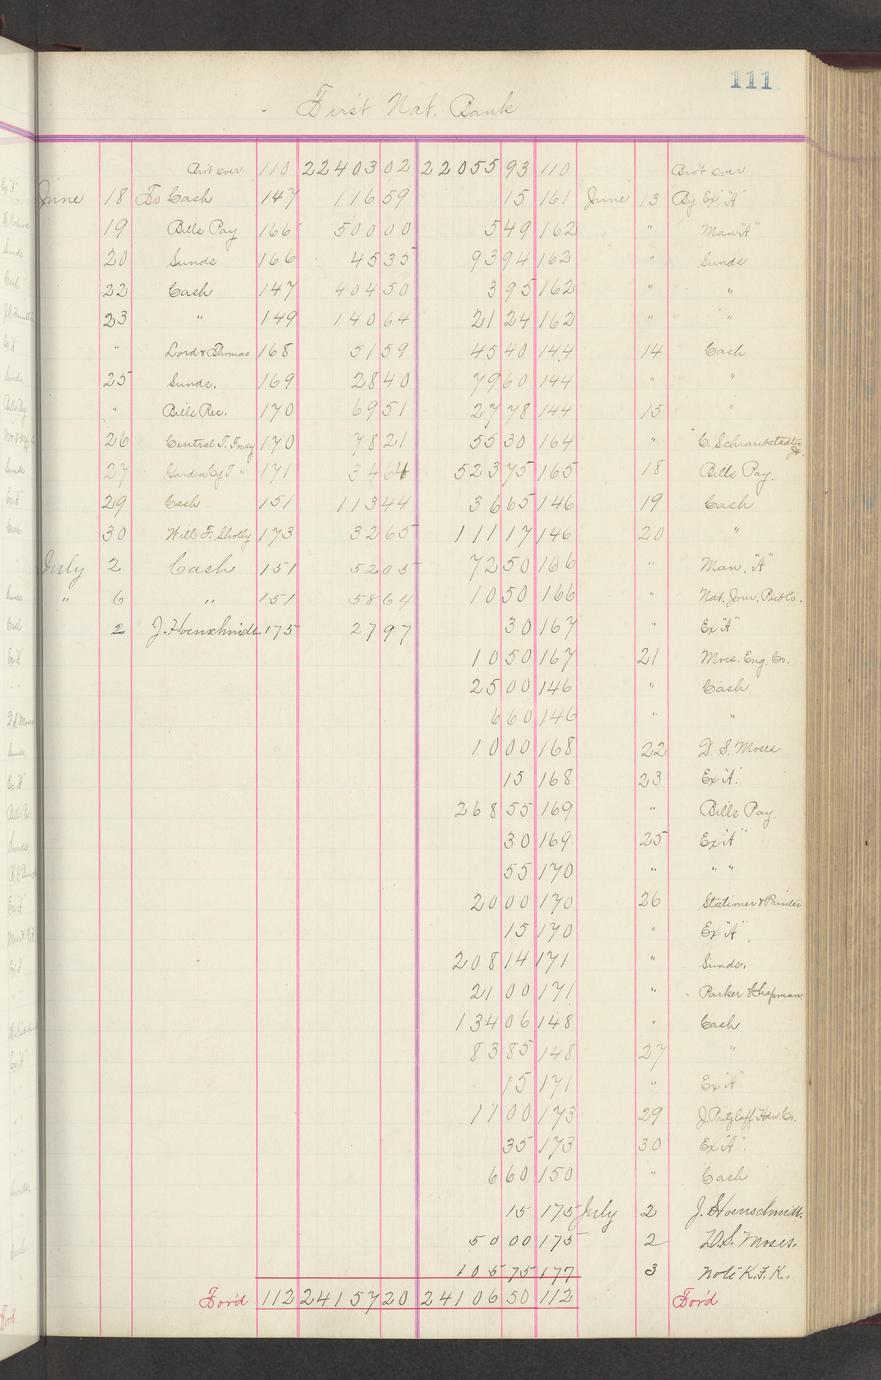 111
First Nat. Bank
Bro't over 110 22403 02 22055 93 110 Bro't over
June 18 To Cash 147 116 59 15 161 June 13 By Ex "A"
19 Bills Pay 166 500 00 5 49 162 " Man "A"
20 Sunds 166 45 35 93 94 162 " Sunds
22 Cash 147 404 50 3 95 162 " "
23 " 149 140 64 21 24 162 " "
" Lord & Thomas 168 51 59 45 40 144 14 Cash
25 Sunds. 169 28 40 79 60 144 " "
" Bills Rec. 170 69 51 27 78 144 15 "
26 Central T. Fndy 170 78 21 55 30 164 " C. Schraubstadter Jr.
27 Garden Cy T " 171 34 64 523 75 165 18 Bills Pay.
29 Cash 151 113 44 36 65 146 19 Cash
30 Will F. 173 32 65 111 17 146 20 "
July 2 Cash 151 52 05 72 50 166 " Man. "A"
" 6 " 151 58 64 10 50 166 " Nat. Jour. Pub Co.
2 J. Hoenschmidt 175 27 97 30 167 " Ex "A"
10 50 167 21 Moss. Eng. Co.
25 00 146 " Cash
6 60 146 " "
10 00 168 22 D. S. Moses
15 168 23 Ex "A"
268 55 169 " Bills Pay
30 169 25 Ex "A"
55 170 " " "
20 00 170 26 & Printer
15 170 " Ex "A"
208 14 171 " Sunds.
21 00 171 " Parker & Chapman
134 06 148 " Cash
83 85 148 27 "
15 171 " Ex "A"
11 00 173 29 J. Pritzlaff Hdw. Co.
35 173 30 Ex "A"
6 60 150 " Cash
15 175 July 2 J. Hoenschmidt.
50 00 175 2 D. S. Moses.
105 75 177 3 Note K. F. K.
For'd 112 24157 20 24106 50 112 For'd